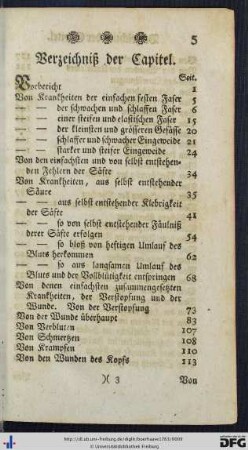 5
Verzeichniß der Capitel.
Seit.
Vorbericht 1
Von Krankheiten der einfachen festen Faser 5
— — der schwachen und schlaffen Faser 6
— — einer steifen und elastischen Faser 15
— — der kleinsten und grösseren Gefässe 20
— — schlaffer und schwacher Eingeweide 21
— — starker und steifer Eingeweide 24
Von den einfachsten und von selbst entstehen-
den Fehlern der Säfte 34
Von Krankheiten, aus selbst entstehender
Säure 35
— — aus selbst entstehender Klebrigkeit
der Säfte 41
— — so von selbst entstehender Fäulniß
derer Säfte erfolgen 54
— — so bloß von heftigen Umlauf des
Bluts herkommen 62
— — so aus langsamen Umlauf des
Bluts und der Vollblütigkeit entspringen 68
Von denen einfachsten zusammengesetzten
Krankheiten, der Verstopfung und der
Wunde. Von der Verstopfung 73
Von der Wunde überhaupt 83
Von Verbluten 107
Von Schmerzen 108
Von Krampfen 110
Von den Wunden des Kopfs 113
)( 3 Von
© Universitätsbibliothek Freiburg
DFG